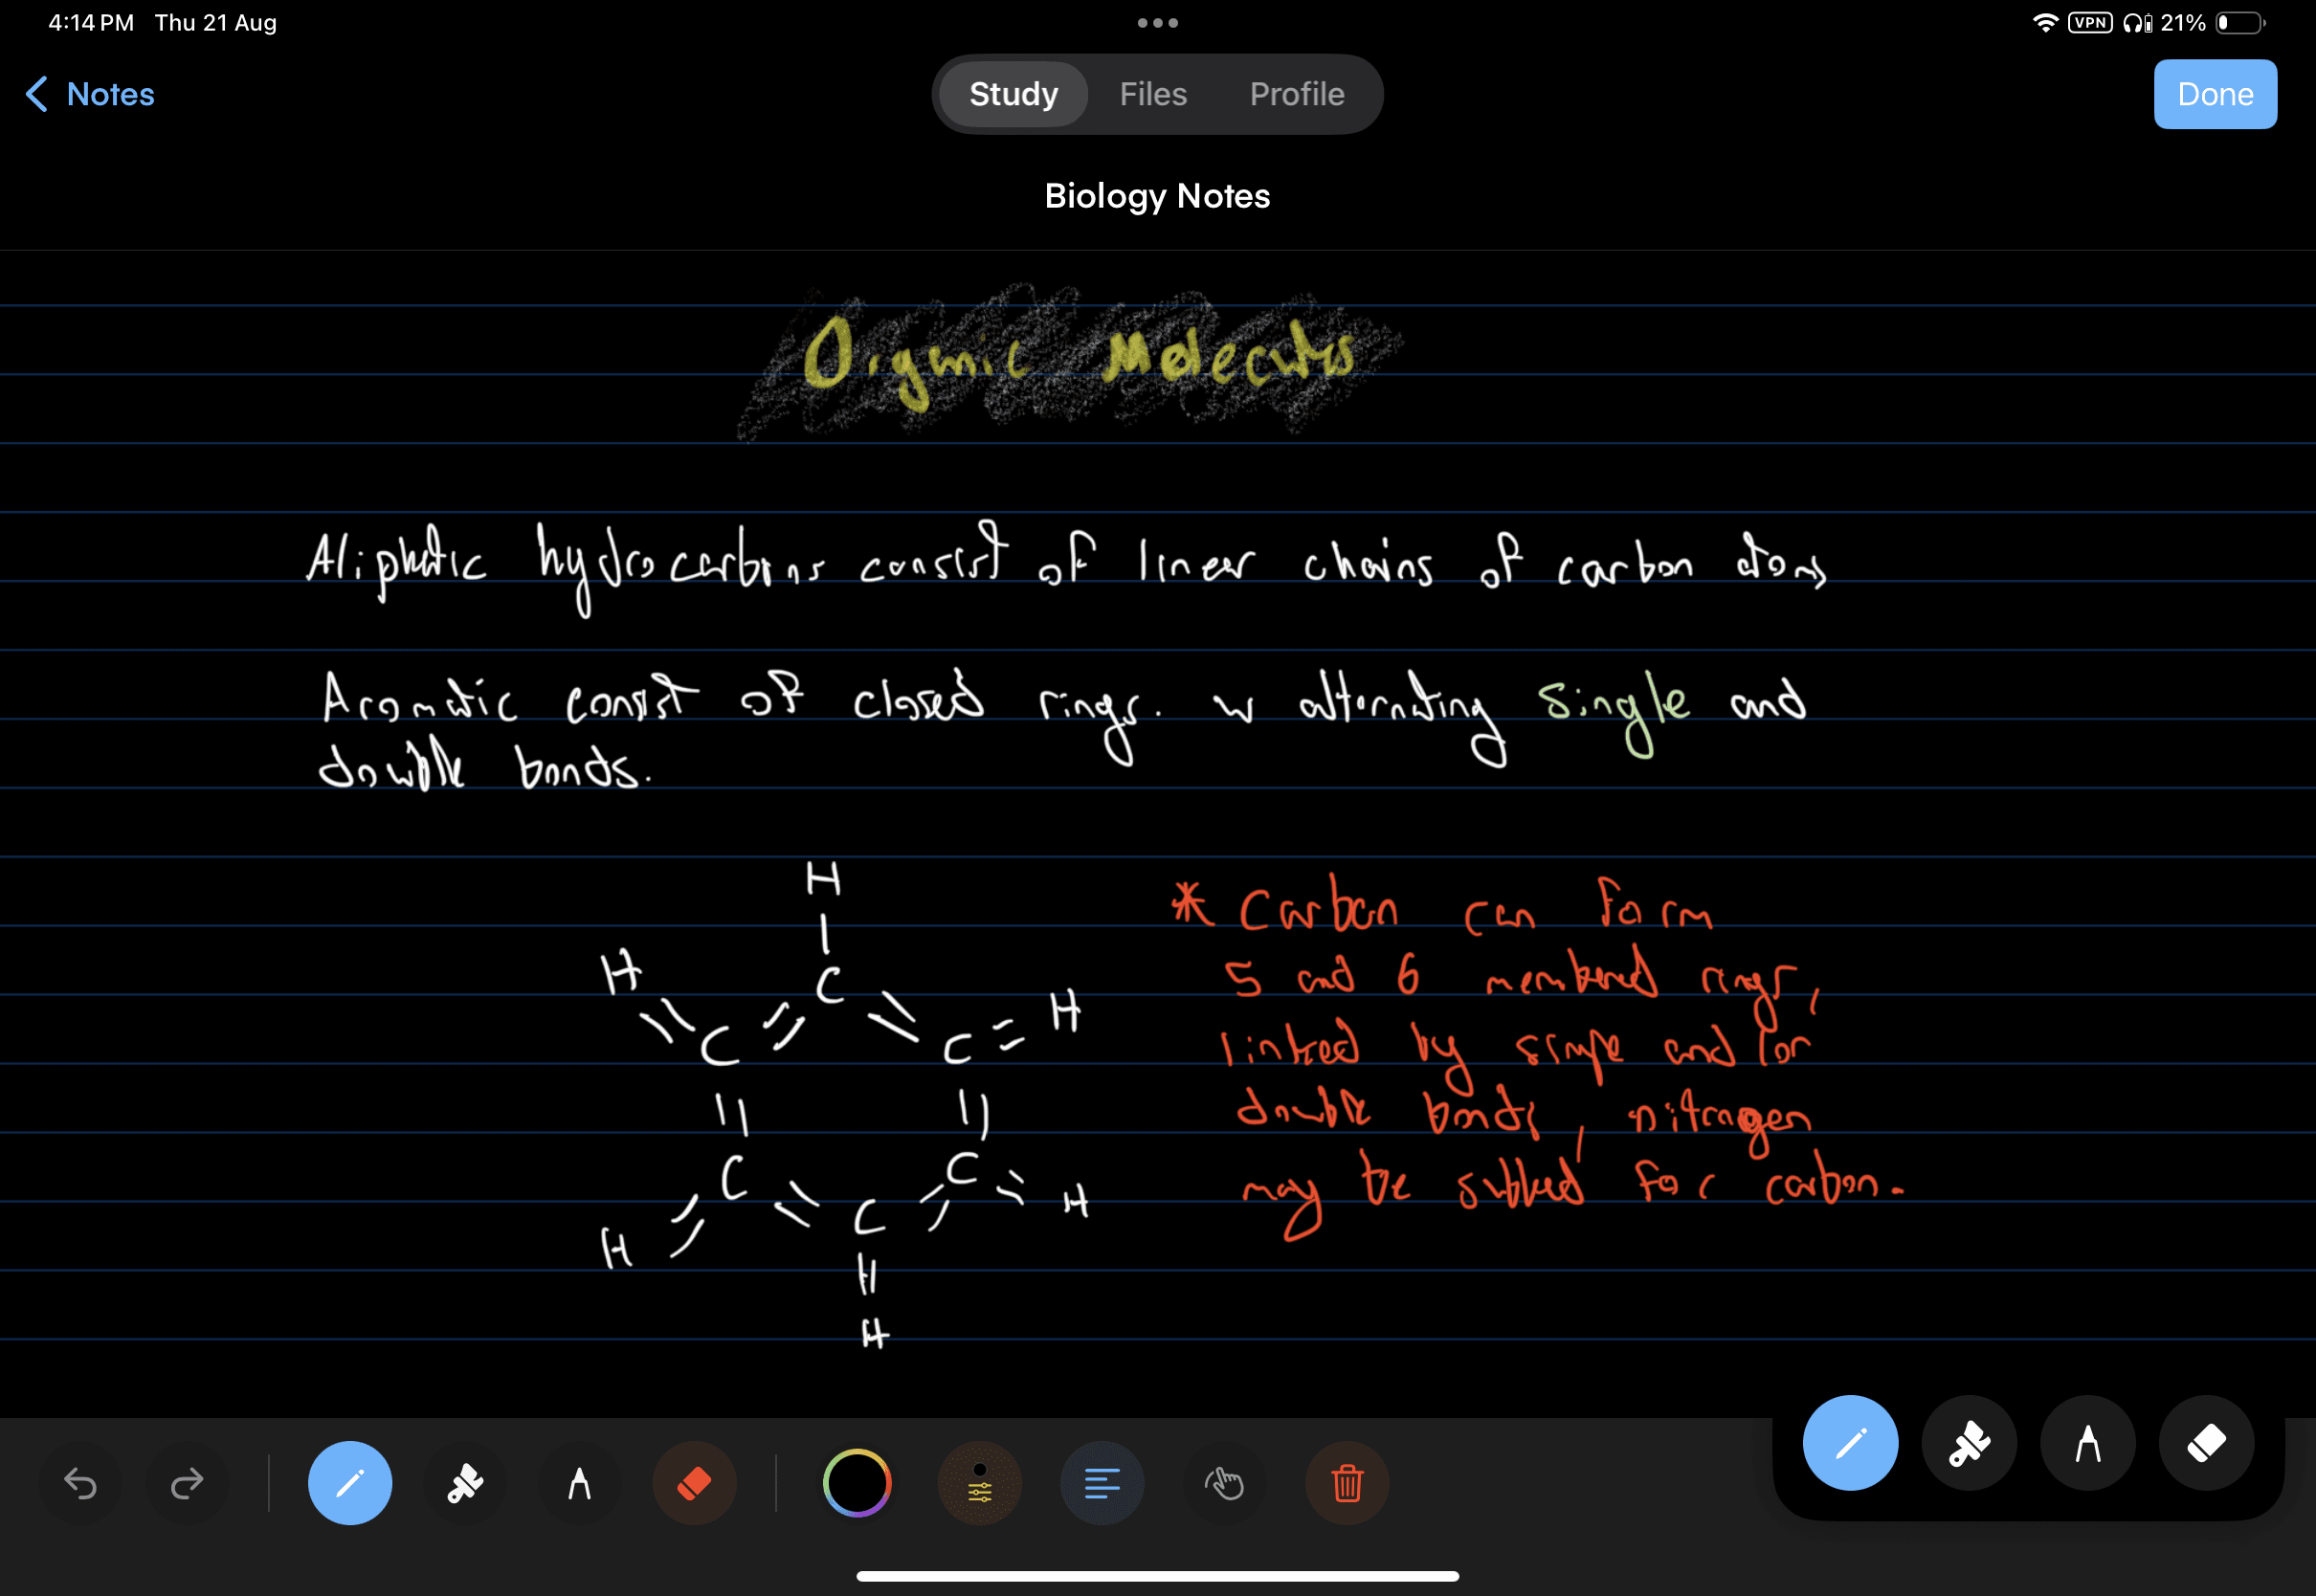 4:14 PM Thu 21 Aug
VPN 21%
Notes
Study Files Profile
Done
Biology Notes
Organic Molecules
Aliphatic hydrocarbons consist of linear chains of carbon atoms
Aromatic consist of closed rings. w alternating single and
double bonds.
H
H
C
C
C = H
C
C
C
H
H
H
* Carbon can form
5 and 6 membered rings,
linked by single and/or
double bonds, nitrogen
may be subbed for carbon.